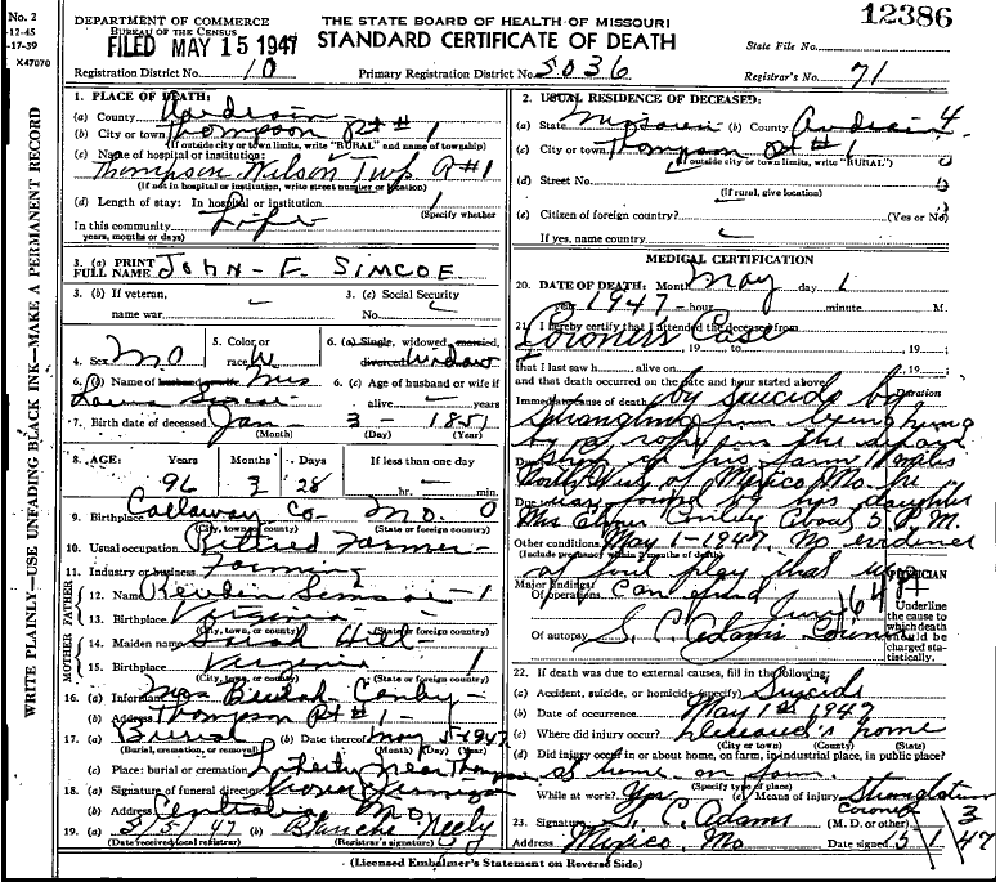 No. 2
-12-45
-17-39
X47070
DEPARTMENT OF COMMERCE
BUREAU OF THE CENSUS
FILED MAY 15 1947
THE STATE BOARD OF HEALTH OF MISSOURI
STANDARD CERTIFICATE OF DEATH
12386
State File No.
Registration District No. 10
Primary Registration District No. 5036
Registrar's No. 71
WRITE PLAINLY—USE UNFADING BLACK INK—MAKE A PERMANENT RECORD
1. PLACE OF DEATH:
(a) County Audrain
(b) City or town Thompson Rt # 1
(If outside city or town limits, write "RURAL" and name of township)
(c) Name of hospital or institution:
Thompson Wilson Twp R #1
(If not in hospital or institution, write street number or location)
(d) Length of stay: In hospital or institution
(Specify whether
In this community Life
years, months or days)
3. (a) PRINT FULL NAME JOHN - F. SIMCOE
3. (b) If veteran, name war
3. (c) Social Security No.
4. Sex M
5. Color or race W
6. (a) Single, widowed, married, divorced Widow
6. (b) Name of husband or wife Mrs
Simcoe
6. (c) Age of husband or wife if alive years
7. Birth date of deceased Jan - 3 - 1851
(Month) (Day) (Year)
8. AGE: Years Months Days If less than one day
96 3 28 hr. min.
9. Birthplace Callaway Co - Mo. 0
(City, town, or county) (State or foreign country)
10. Usual occupation Retired Farmer -
11. Industry or business Farming
FATHER
12. Name Reuben Simcoe - 1
13. Birthplace Virginia
(City, town, or county) (State or foreign country)
MOTHER
14. Maiden name Hill
15. Birthplace Virginia 1
(City, town, or county) (State or foreign country)
16. (a) Informant Mrs Beulah
(b) Address Thompson Rt # 1 -
17. (a) Burial (b) Date thereof May 5-1947
(Burial, cremation, or removal) (Month) (Day) (Year)
(c) Place: burial or cremation near Thompson
18. (a) Signature of funeral director
(b) Address Centralia MO
19. (a) 5/5/47 (b) Blanche Neely
(Date received local registrar) (Registrar's signature)
2. USUAL RESIDENCE OF DECEASED:
(a) State Missouri (b) County Audrain 4
(c) City or town Thompson Rt #1
(If outside city or town limits, write "RURAL")
(d) Street No.
(If rural, give location)
(e) Citizen of foreign country? (Yes or No)
If yes, name country
MEDICAL CERTIFICATION
20. DATE OF DEATH: Month May day 1
year 1947 - hour minute M.
21. I hereby certify that I attended the deceased from
Coroner's Case
, 19 , to , 19 ;
that I last saw h alive on , 19 ;
and that death occurred on the date and hour stated above.
Duration
Immediate cause of death by suicide by
strangling from being hung
by a rope in the
Due to shop of his farm 11 miles
North West of Mexico Mo. he
Due to was found by his daughter
Mrs Elmer about 5. P.M.
Other conditions May 1-1947, No evidence
(Include pregnancy within 3 months of death)
of foul play that
Major findings:
Of operations can find
164
PHYSICIAN
Underline the cause to which death should be charged statistically.
Of autopsy S. C. Adams Coroner
22. If death was due to external causes, fill in the following:
(a) Accident, suicide, or homicide (specify) Suicide
(b) Date of occurrence May 1st 1947
(c) Where did injury occur? Deceased's home
(City or town) (County) (State)
(d) Did injury occur in or about home, on farm, in industrial place, in public place?
at home on farm.
(Specify type of place)
While at work? (e) Means of injury Strangulation
23. Signature S. C. Adams Coroner 3
(M. D. or other)
Address Mexico, Mo Date signed 5/1/47
(Licensed Embalmer's Statement on Reverse Side)